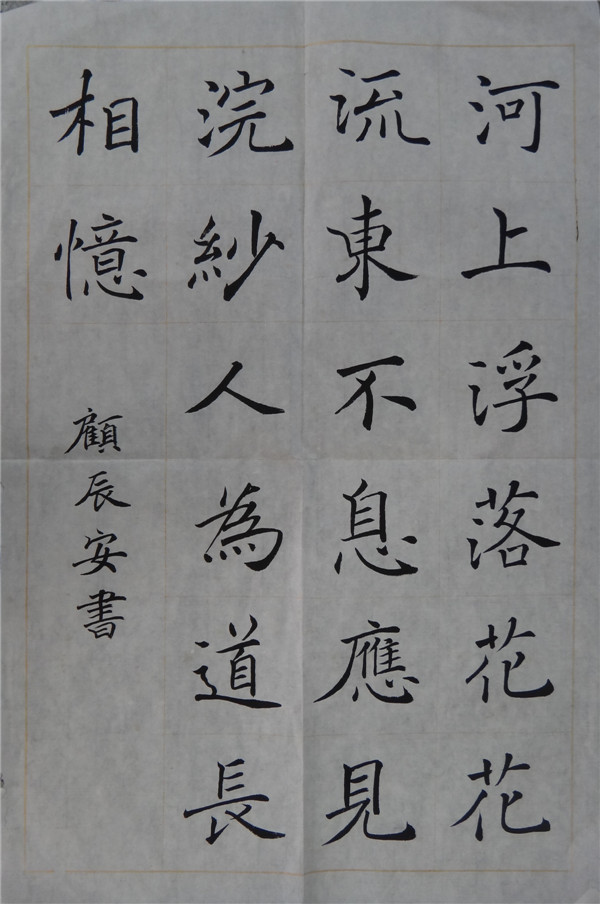 河上浮落花花
流東不息應見
浣紗人為道長
相憶
顧辰安書